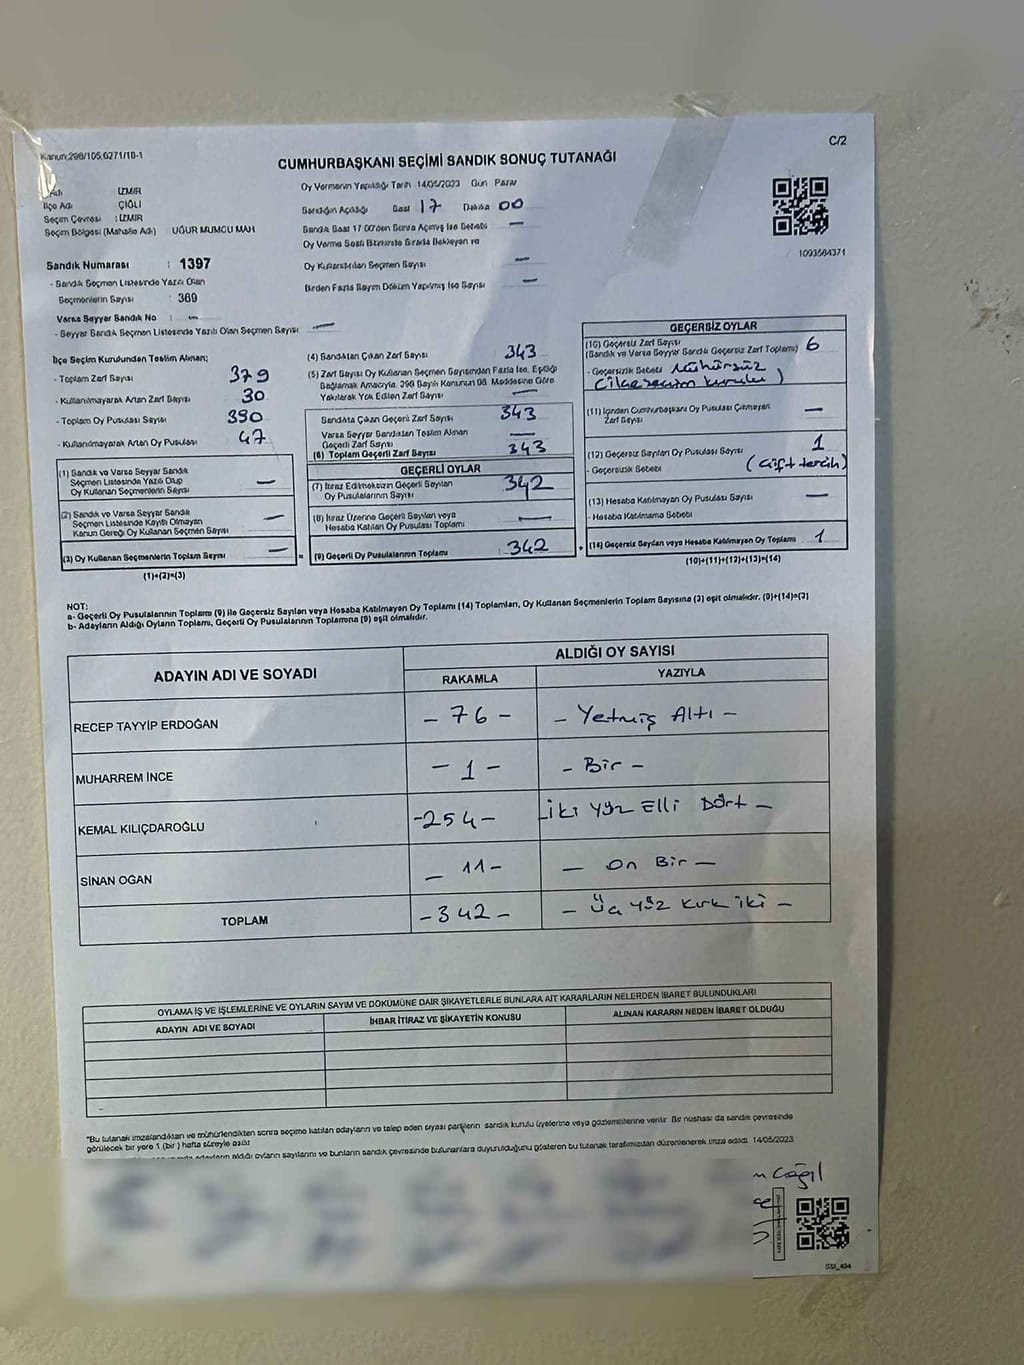 Kanun:298/105,6271/18-1
C/2
CUMHURBAŞKANI SEÇİMİ SANDIK SONUÇ TUTANAĞI
Adı : İZMİR
İlçe Adı : ÇİĞLİ
Seçim Çevresi : İZMİR
Seçim Bölgesi (Mahalle Adı) : UĞUR MUMCU MAH
Oy Vermenin Yapıldığı Tarih 14/05/2023 Gün Pazar
Sandığın Açıldığı Saat 17 Dakika 00
Sandık Saat 17 00'den Sonra Açılmış İse Sebebi —
Oy Verme Saati Bitiminde Sırada Bekleyen ve
Oy Kullandırılan Seçmen Sayısı —
Birden Fazla Sayım Döküm Yapılmış İse Sayısı —
1093584371
Sandık Numarası : 1397
- Sandık Seçmen Listesinde Yazılı Olan
Seçmenlerin Sayısı : 369
Varsa Seyyar Sandık No : —
- Seyyar Sandık Seçmen Listesinde Yazılı Olan Seçmen Sayısı —
İlçe Seçim Kurulundan Teslim Alınan;
- Toplam Zarf Sayısı 379
- Kullanılmayarak Artan Zarf Sayısı 30
- Toplam Oy Pusulası Sayısı 390
- Kullanılmayarak Artan Oy Pusulası 47
(1) Sandık ve Varsa Seyyar Sandık
Seçmen Listesinde Yazılı Olup
Oy Kullanan Seçmenlerin Sayısı —
(2) Sandık ve Varsa Seyyar Sandık
Seçmen Listesinde Kayıtlı Olmayan
Kanun Gereği Oy Kullanan Seçmen Sayısı —
(3) Oy Kullanan Seçmenlerin Toplam Sayısı —
(1)+(2)=(3)
(4) Sandıktan Çıkan Zarf Sayısı 343
(5) Zarf Sayısı Oy Kullanan Seçmen Sayısından Fazla İse, Eşitliği
Sağlamak Amacıyla, 298 Sayılı Kanunun 98. Maddesine Göre
Yakılarak Yok Edilen Zarf Sayısı —
Sandıkta Çıkan Geçerli Zarf Sayısı 343
Varsa Seyyar Sandıktan Teslim Alınan
Geçerli Zarf Sayısı —
(6) Toplam Geçerli Zarf Sayısı 343
GEÇERLİ OYLAR
(7) İtiraz Edilmeksizin Geçerli Sayılan
Oy Pusulalarının Sayısı 342
(8) İtiraz Üzerine Geçerli Sayılan veya
Hesaba Katılan Oy Pusulası Toplamı —
(9) Geçerli Oy Pusulalarının Toplamı 342
GEÇERSİZ OYLAR
(10) Geçersiz Zarf Sayısı
(Sandık ve Varsa Seyyar Sandık Geçersiz Zarf Toplamı) 6
- Geçersizlik Sebebi Mühürsüz
(ilçe seçim kurulu)
(11) İçinden Cumhurbaşkanı Oy Pusulası Çıkmayan
Zarf Sayısı —
(12) Geçersiz Sayılan Oy Pusulası Sayısı 1
- Geçersizlik Sebebi (Çift tercih)
(13) Hesaba Katılmayan Oy Pusulası Sayısı —
- Hesaba Katılmama Sebebi
(14) Geçersiz Sayılan veya Hesaba Katılmayan Oy Toplamı 1
(10)+(11)+(12)+(13)=(14)
NOT:
a- Geçerli Oy Pusulalarının Toplamı (9) ile Geçersiz Sayılan veya Hesaba Katılmayan Oy Toplamı (14) Toplamları, Oy Kullanan Seçmenlerin Toplam Sayısına (3) eşit olmalıdır. (9)+(14)=(3)
b- Adayların Aldığı Oyların Toplamı, Geçerli Oy Pusulalarının Toplamına (9) eşit olmalıdır.
ADAYIN ADI VE SOYADI
ALDIĞI OY SAYISI
RAKAMLA YAZIYLA
RECEP TAYYİP ERDOĞAN - 76 - - Yetmiş Altı -
MUHARREM İNCE - 1 - - Bir -
KEMAL KILIÇDAROĞLU -254- -İki Yüz Elli Dört -
SİNAN OĞAN - 11- - On Bir -
TOPLAM -342- - Üç Yüz Kırk iki -
OYLAMA İŞ VE İŞLEMLERİNE VE OYLARIN SAYIM VE DÖKÜMÜNE DAİR ŞİKAYETLERLE BUNLARA AİT KARARLARIN NELERDEN İBARET BULUNDUKLARI
ADAYIN ADI VE SOYADI İHBAR İTİRAZ VE ŞİKAYETİN KONUSU ALINAN KARARIN NEDEN İBARET OLDUĞU
"Bu tutanak imzalandıktan ve mühürlendikten sonra seçime katılan adayların ve talep eden siyasi partilerin sandık kurulu üyelerine veya gözlemcilerine verilir. Bir nüshası da sandık çevresinde
görülecek bir yere 1 (bir) hafta süreyle asılır
adayların aldığı oyların sayılarını ve bunların sandık çevresinde bulunanlara duyurulduğunu gösteren bu tutanak tarafımızdan düzenlenerek imza edildi 14/05/2023